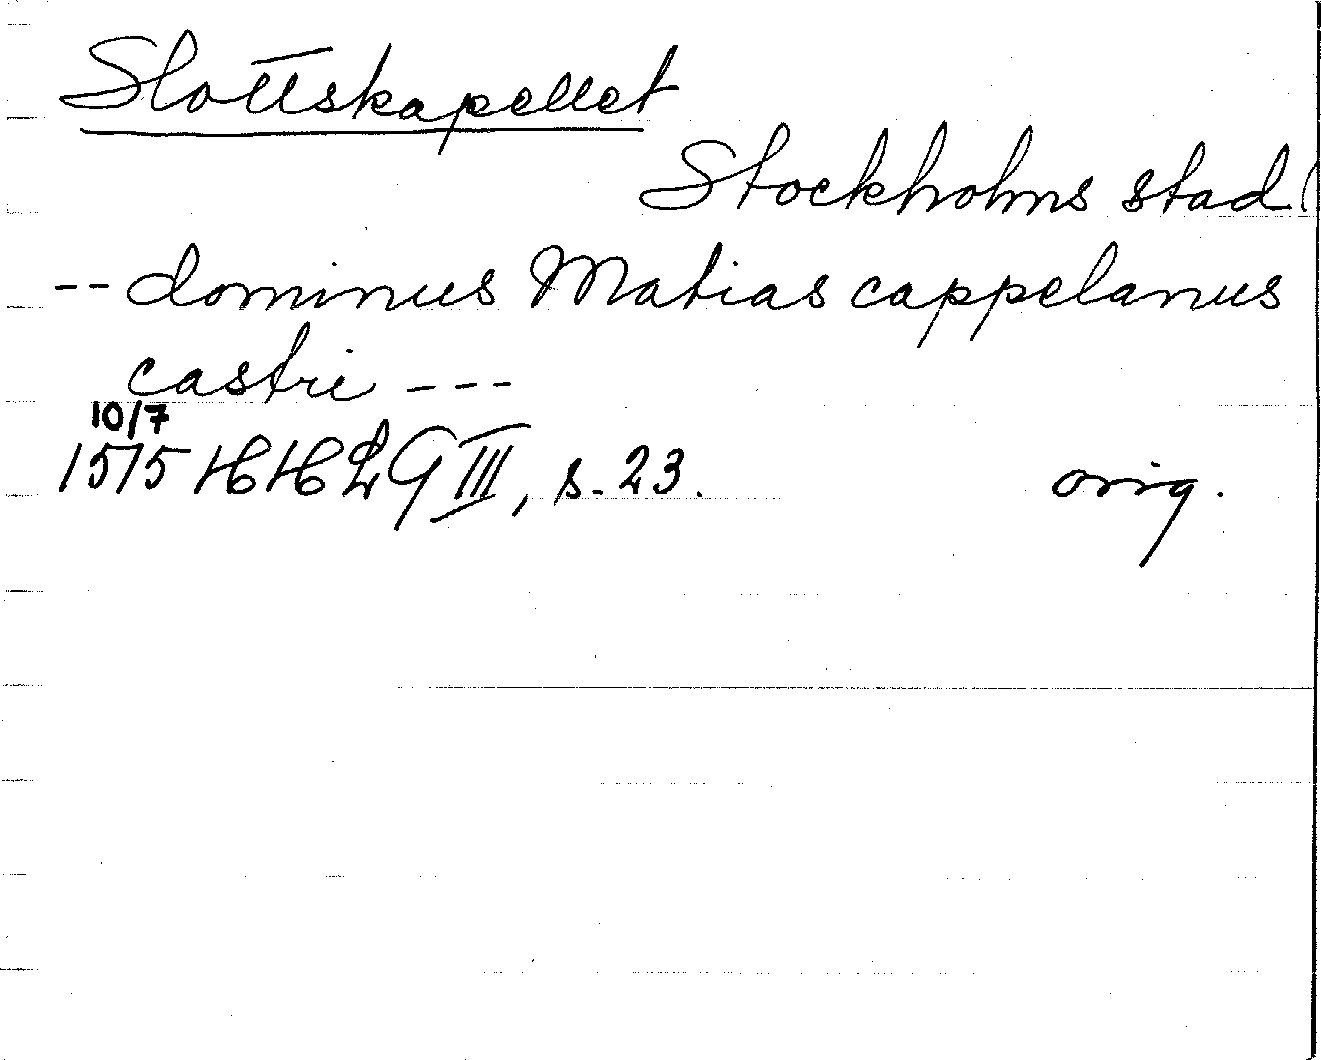 Slottskapellet
Stockholms stad
-- dominus Matias cappelanus
castri ---
10/7
1515 HH Lg III, s. 23. orig.